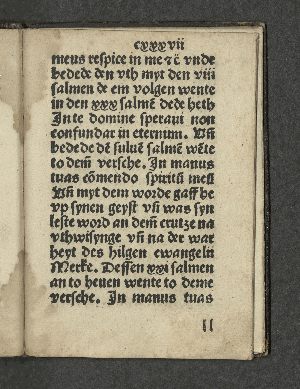 cxxxvii
meus respice in me ⁊c̄ vnde
bedede den vth myt den viii
salmen de em volgen wente
in den xxx salmē dede heth
In te domine speraui non
confundar in eternum. Vn̄
bedede dē suluē salmē wēte
to dem̄ versche. In manus
tuas cōmendo spiritū meū
Vn̄ myt dem worde gaff he
vp synen geyst vn̄ was syn
leste word an dem̄ crutze na
vthwisynge vn̄ na der war
heyt des hilgen ewangelii
Merke. Dessen xxi salmen
an to heuen wente to deme
versche. In manus tuas